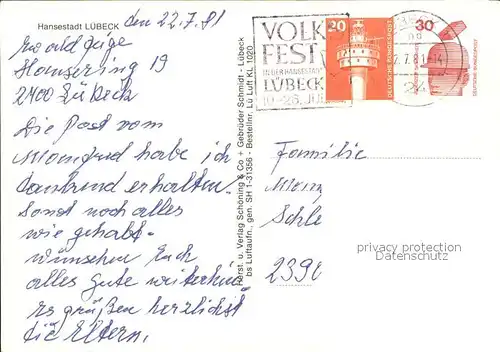 Hansestadt LÜBECK
den 22.7.81
Ewald Jige
Hansering 19
2400 Lübeck
Die Post vom
Manfred habe ich
dankend erhalten.
Sonst noch alles
wie gehabt.
wünschen Euch
alles Gute weiterhin
es grüßen herzlichst
die Eltern.
Verlag Schöning & Co + Gebrüder Schmidt - Lübeck
bs Luftaufn. gen. SH 1-31356 - Bestellnr. Lü Luft KL 1020
VOLKS
FEST
IN DER HANSESTADT
LÜBECK
20
DEUTSCHE BUNDESPOST
30
DEUTSCHE BUNDESPOST
Familie
Schle
239
privacy protection
Datenschutz